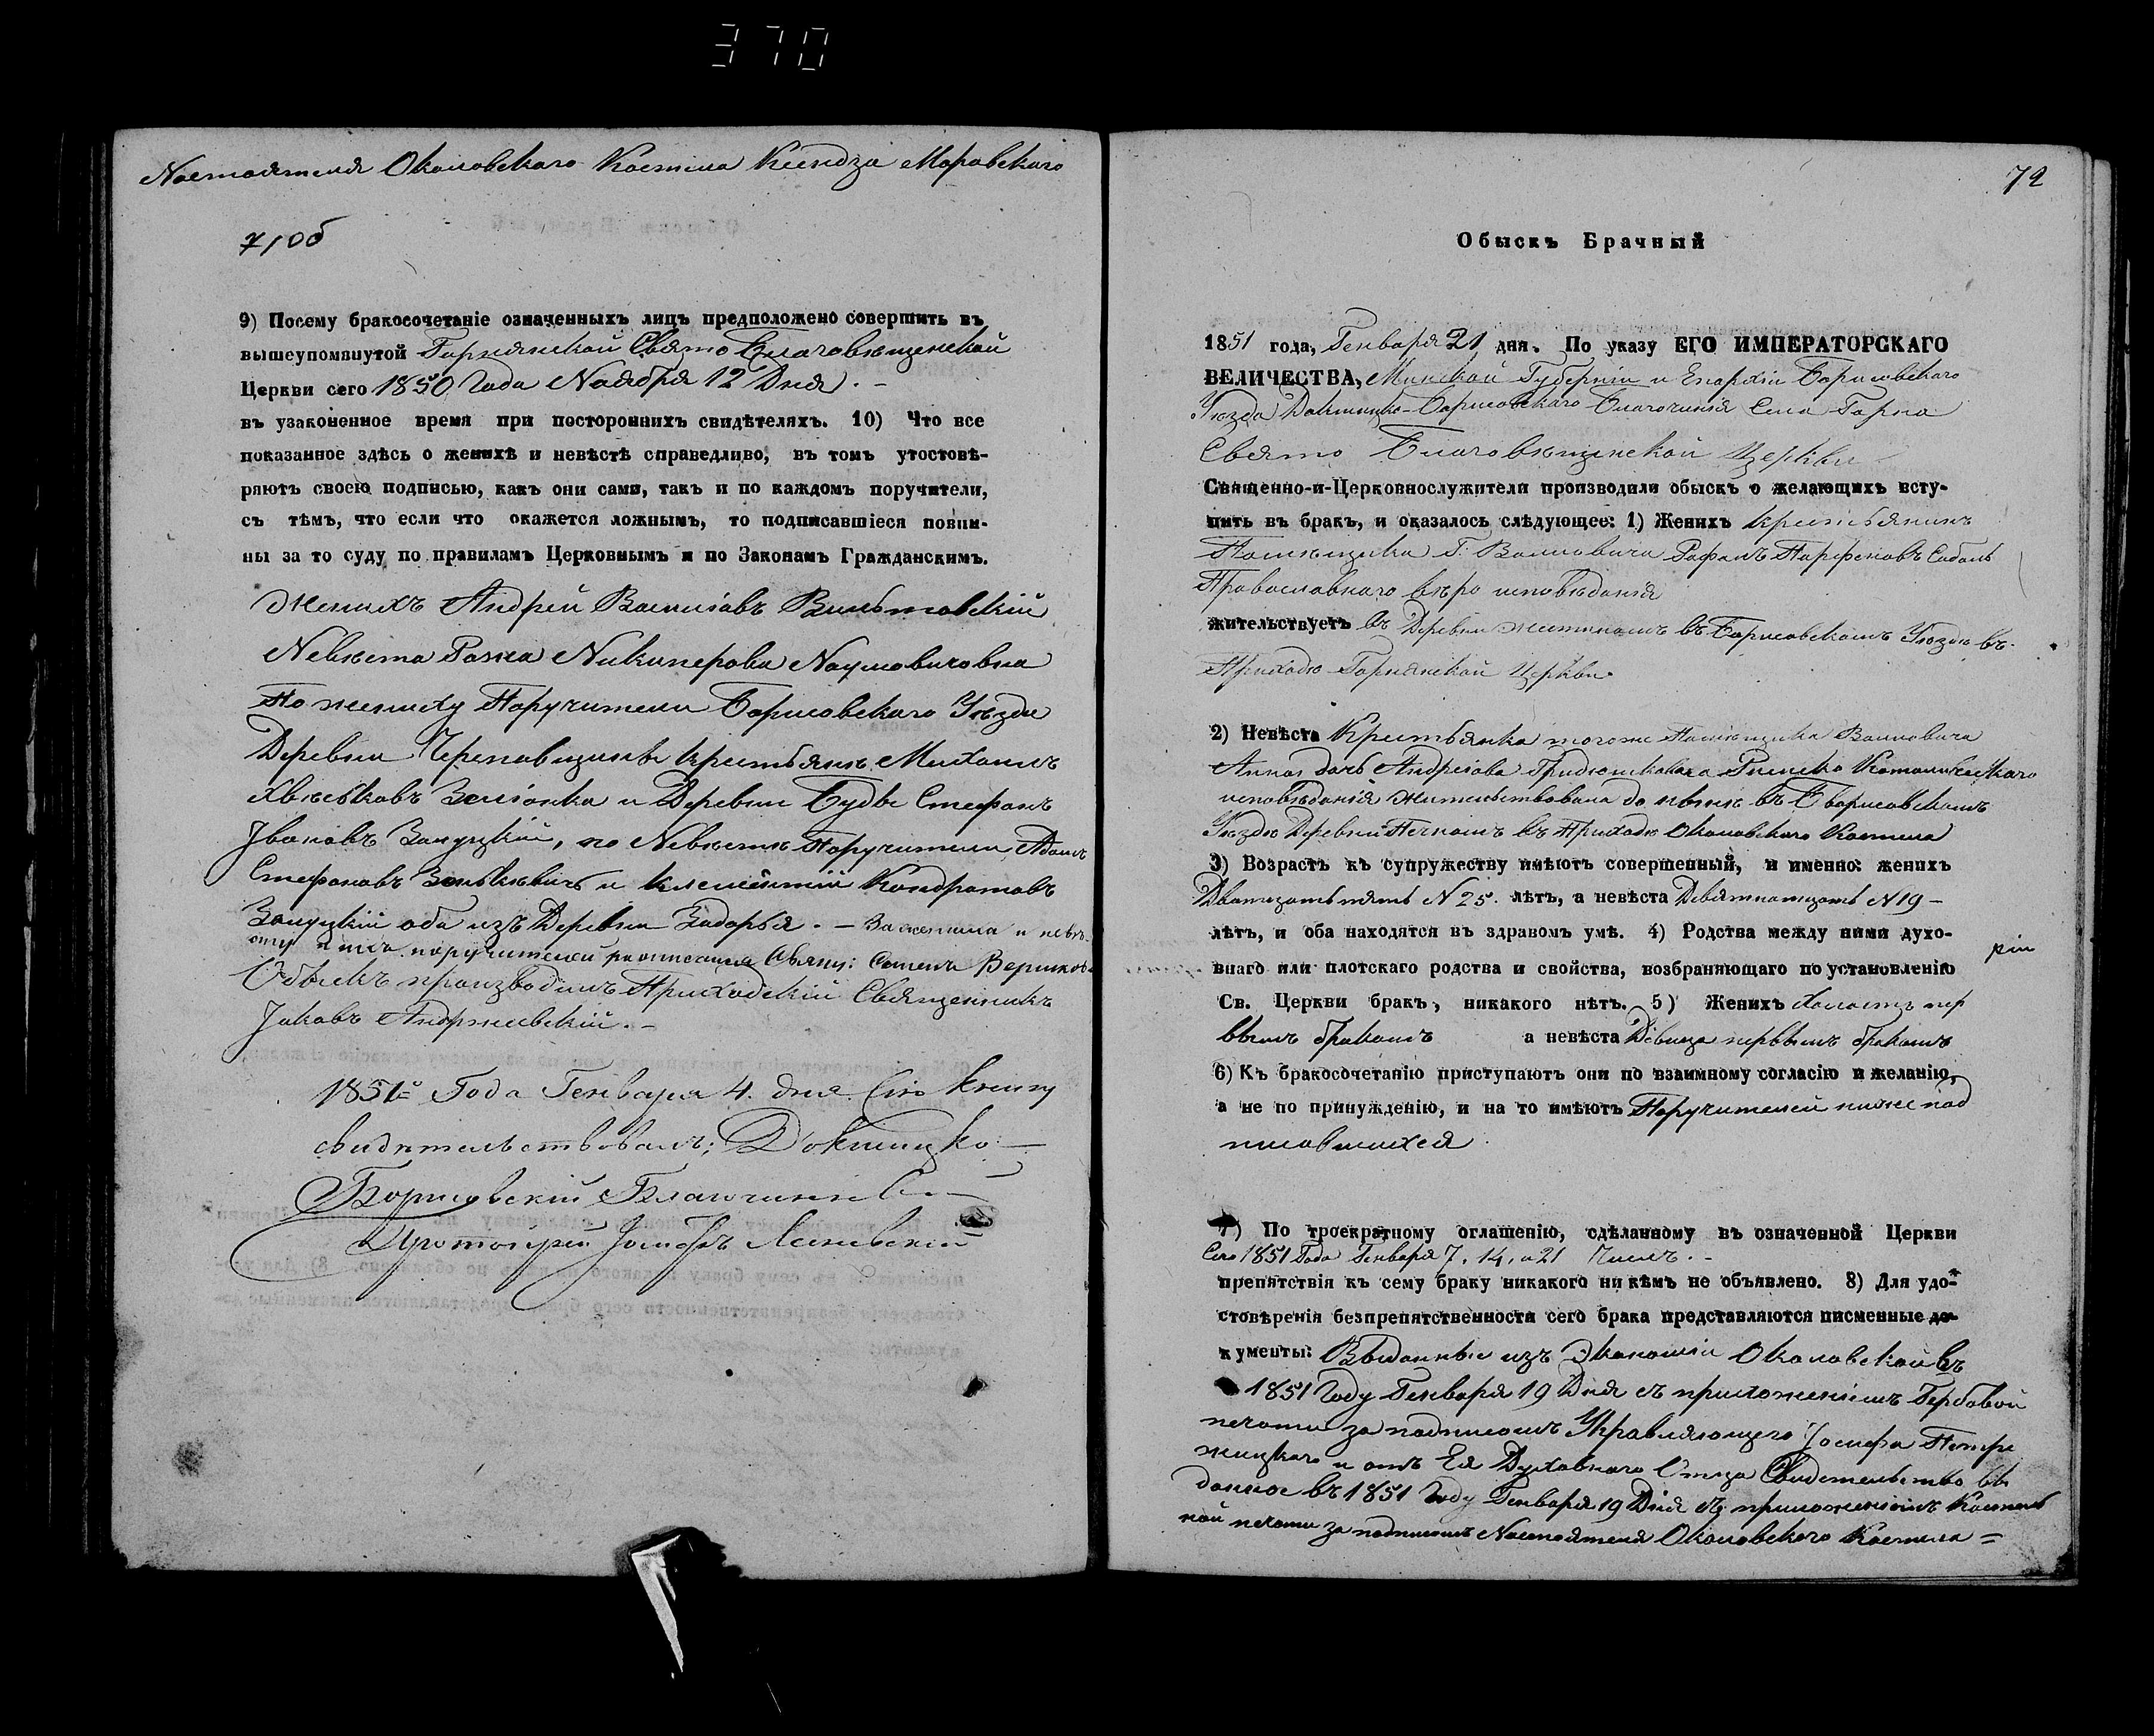 370
Настоятеля Околовскаго Костела Ксендза Моравскаго
71 об
9) Посему бракосочетаніе означенныхъ лицъ предположено совершить въ
вышеупомянутой Гарнянской Свято Благовѣщенской
Церкви сего 1850 Года Ноября 12 Дня. -
въ узаконенное время при постороннихъ свидѣтеляхъ. 10) Что все
показанное здѣсь о женихѣ и невѣстѣ справедливо, въ томъ утостовѣ-
ряютъ своею подписью, какъ они сами, такъ и по каждомъ поручители,
съ тѣмъ, что если что окажется ложнымъ, то подписавшіеся повин-
ны за то суду по правиламъ Церковнымъ и по Законамъ Гражданскимъ.
Женихъ Андрей Васильевъ
Невѣста Никиперова Наумовичовна
По жениху Поручители Борисовскаго Уѣзда
Деревни крестьяне Михаилъ
и Деревни Будъ Стефанъ
Івановъ Залуцкій, по Невѣстѣ Поручители Адамъ
Стефановъ и Клементій Кондратовъ
Залуцкій оба изъ Деревни Задорья. - За жениха и невѣ-
сту и поручителей росписался
Обыскъ производилъ Приходскій Священникъ
Іаковъ Андржеевскій. -
1851го Года Генваря 4. дня Сію книгу
свидѣтельствовалъ; Докшицко-
Борисовскій Благочинный
Протоіерей Іосифъ
72
Обыскъ Брачный
1851 года, Генваря 21 дня. По указу ЕГО ИМПЕРАТОРСКАГО
ВЕЛИЧЕСТВА, Минской Губерніи и Епархіи Борисовскаго
Уѣзда Докшицко-Борисовскаго Благочинія Села Гарна
Свято Благовѣщенской Церкви
Священно-и-Церковнослужители производили обыскъ о желающихъ всту-
пить въ бракъ, и оказалось слѣдующее: 1) Женихъ крестьянинъ
Помѣщика Г. Воловича Парфеновъ
Православнаго вѣро исповѣданія
жительствуетъ въ Деревни въ Борисовскомъ Уѣздѣ въ
Приходѣ Гарнянской Церкви.
2) Невѣста Крестьянка тогоже Помѣщика Воловича
Анна дочь Андреева Римско Католическаго
исповѣданія жительствовала до нынѣ въ Борисовскомъ
Уѣздѣ Деревни въ Приходѣ Околовскаго Костела
3) Возрастъ къ супружеству имѣютъ совершенный, и именно: женихъ
Дватцать пять N 25. лѣтъ, а невѣста Девятнатцать N 19 -
лѣтъ, и оба находятся въ здравомъ умѣ. 4) Родства между ними духо-
внаго или плотскаго родства и свойства, возбраняющаго по установленію
Св. Церкви бракъ, никакого нѣтъ. 5) Женихъ холостъ пер
вымъ бракомъ а невѣста Дѣвица первымъ бракомъ
6) Къ бракосочетанію приступаютъ они по взаимному согласію и желанію,
а не по принужденію, и на то имѣютъ Поручителей ниже под
писавшихся
7) По троекратному оглашенію, сдѣланному въ означенной Церкви
Сего 1851 Года Генваря 7, 14, и 21 Числъ. -
препятствія къ сему браку никакого никѣмъ не объявлено. 8) Для удо-
стовѣренія безпрепятственности сего брака представляются писменные до-
кументы: Выданные изъ Экономіи Околовской въ
1851 Году Генваря 19 Дня съ приложеніемъ Гербовой
печати за подписомъ Управляющаго Іосифа
и отъ Ея Духовнаго Отца Свидетельство вы
данное въ 1851 Году Генваря 19 Дня съ приложеніемъ Костель
ной печати за подписомъ Настоятеля Околовскаго Костела =